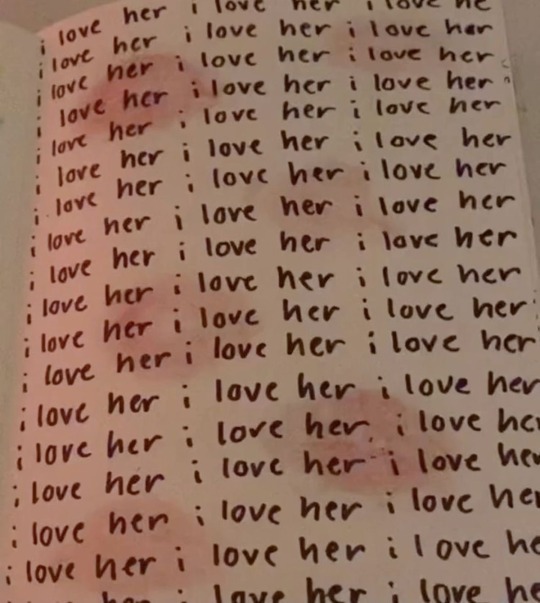 i love her i love her i love he
i love her i love her i love her
i love her i love her i love her
i love her i love her i love her
i love her i love her i love her
i love her i love her i love her
i love her i love her i love her
i love her i love her i love her
i love her i love her i love her
i love her i love her i love her
i love her i love her i love her
i love her i love her i love her
i love her i love her i love her
i love her i love her i love he
i love her i love her i love her
i love her i love her i love her
i love her i love her i love he
her i love her i love he